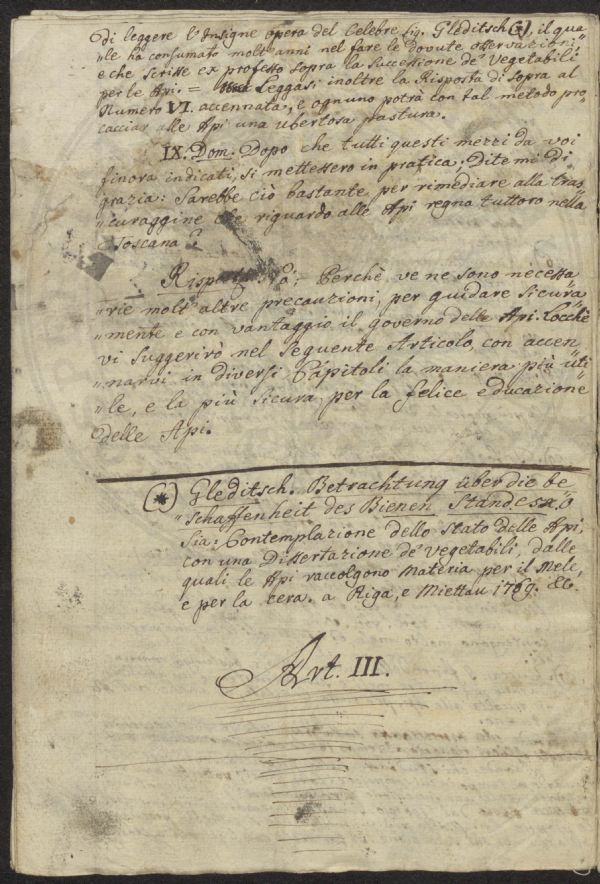 di leggere l'Insigne opera del Celebre Sig. Gleditsch (*), il qua
"le ha consumato molt'anni nel fare le dovute osservazioni,
e che scrisse ex professo sopra la Successione de' Vegetabili
per le Api. = Leggasi inoltre la Risposta di sopra al
Numero VI. accennata, e ognuno potrà con tal metodo pro,
cacciar alle Api una ubertosa pastura.
IX. Dom. Dopo che tutti questi mezzi da voi
finora indicati, si mettessero in pratica, Ditemi di
grazia: Sarebbe ciò bastante per rimediare alla tras,
"curaggine che riguardo alle Api regna tuttoro nella
Toscana?
Risposta. No: Perchè ve ne sono necessa
"rie molt'altre precauzioni, per guidare sicura
"mente e con vantaggio il governo delle Api. Locchè
vi suggerirò nel seguente Articolo, con accen
"narvi in diversi Capitoli la maniera più uti
"le, e la più sicura per la felice educazione
delle Api.
(*) Gleditsch. Betrachtung über die be
"schaffenheit des Bienen Standes
Sia: Contemplazione dello Stato delle Api,
con una Dissertazione de' vegetabili, dalle
quali le Api raccolgono Materia per il Mele,
e per la cera. a Riga, e Miettau 1769. &c.
Art. III.